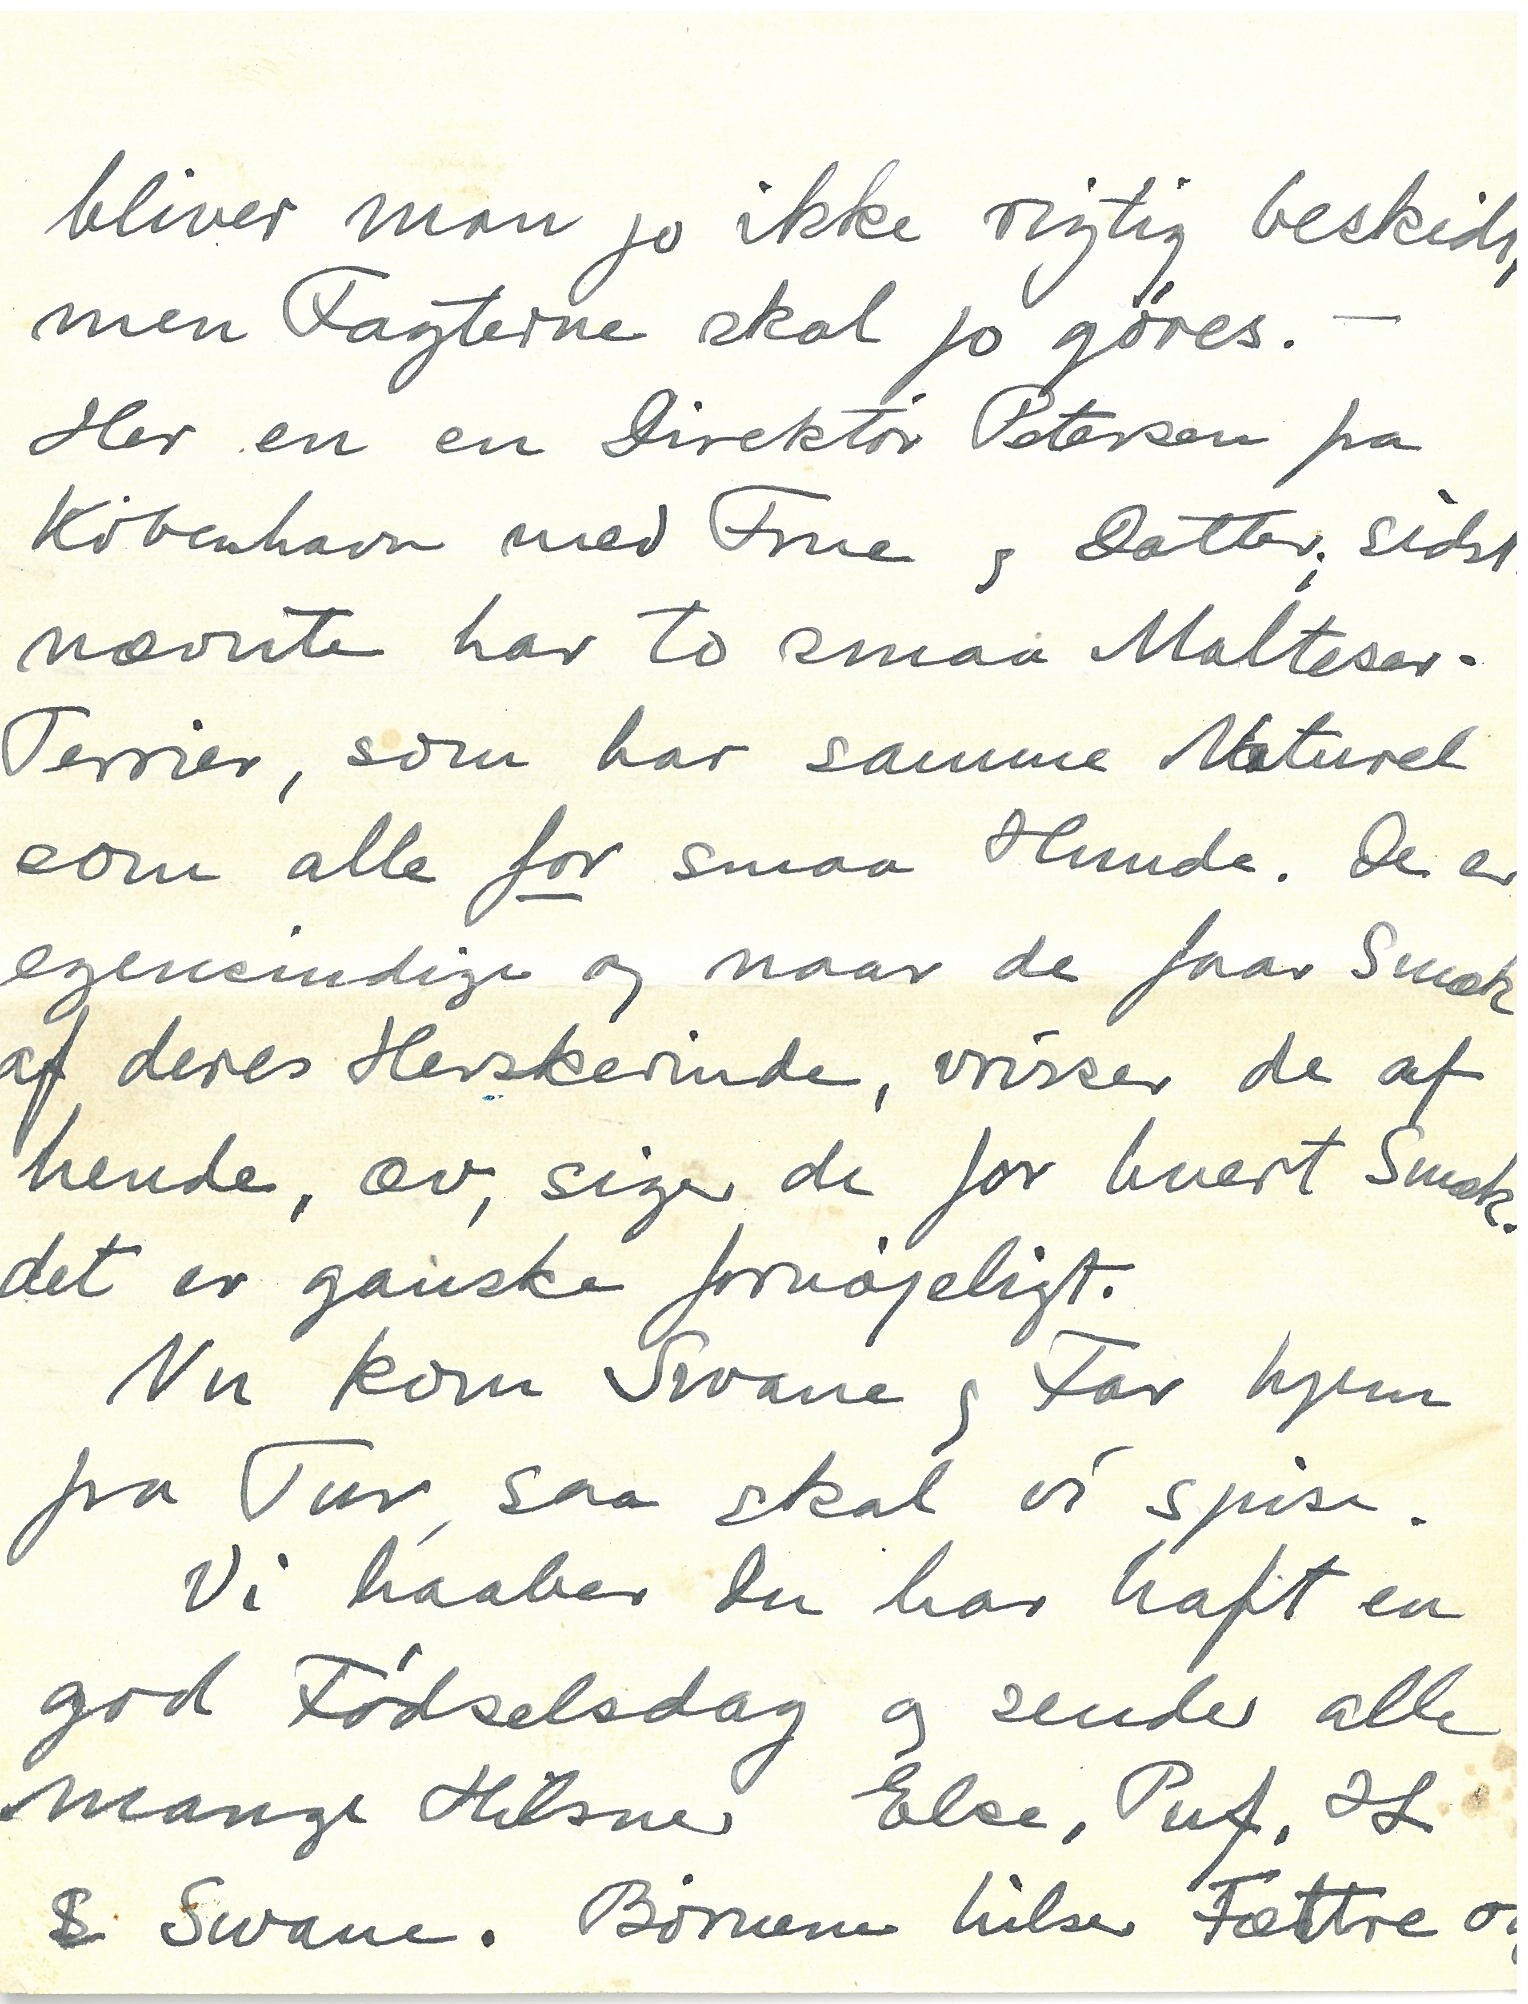 bliver man jo ikke rigtig beskidt,
men Fagterne skal jo göres. —
Her en en Direktör Petersen fra
Köbenhavn med Frue og Datter, sidst
nævnte har to smaa Malteser-
Terrier, som har samme Naturel
som alle for smaa Hunde. De er
egensindige og naar de faar Smæk
af deres Herskerinde, vrisser de af
hende, æv, siger de for hvert Smæk.
det er ganske fornöjeligt.
Nu kom Swane og Far hjem
fra Tur, saa skal vi spise.
Vi haaber Du har haft en
god Födselsdag og sender alle
mange Hilsner Else, Puf, JL
& Swane. Börnene hilser Fættre og